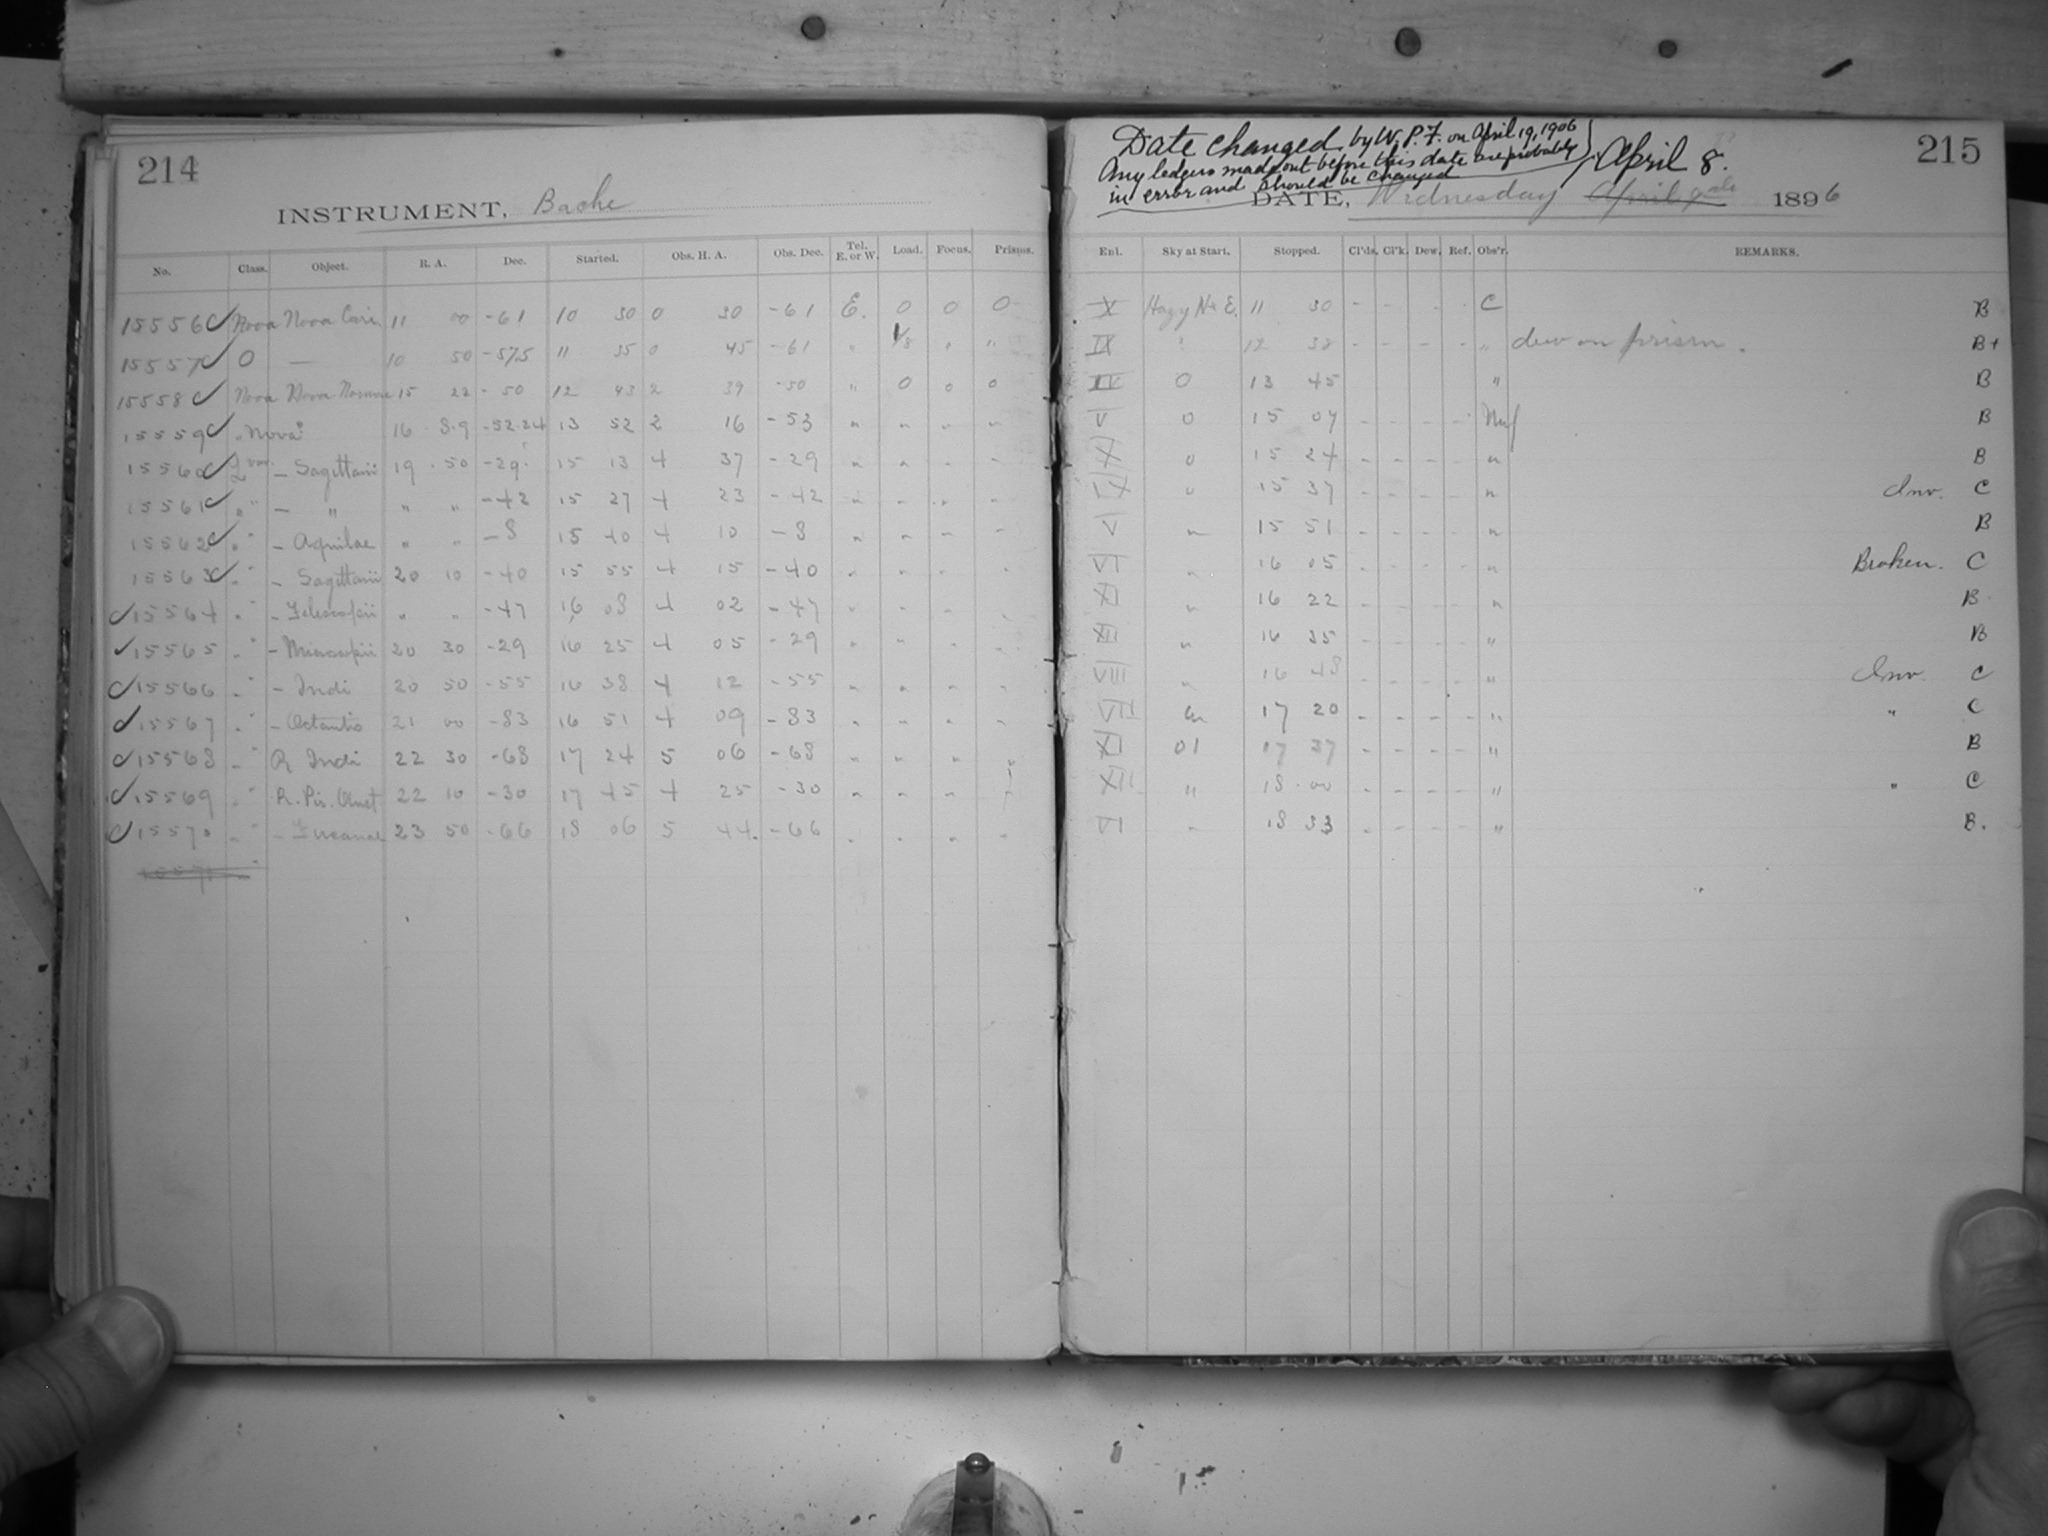 214
INSTRUMENT, Bache
No. Class. Object. R. A. Dec. Started. Obs. H. A. Obs. Dec. Tel. E. or W. Load. Focus. Prisms.
15556 Nova Nova Carin 11 00 -61 10 30 0 30 -61 E. 0 0 0
15557 O — 10 50 -57.5 11 35 0 45 -61 " " "
15558 Nova Nova Normae 15 22 - 50 12 43 2 39 -50 " 0 0 0
15559 " Nova? 16 8.9 -52.24 13 52 2 16 -53 " " " "
15560 — Sagittarii 19 .50 -29. 15 13 4 37 -29 " " " "
15561 " " — " " " -42 15 27 4 23 -42 " " " "
15562 " " - Aquilae " " -8 15 40 4 10 -8 " " " "
15563 " " - Sagittarii 20 10 -40 15 55 4 15 -40 " " " "
15564 " " - Telescopii " " -47 16 08 4 02 -47 " " " "
15565 " " - Microscopii 20 30 -29 16 25 4 05 -29 " " " "
15566 " " - Indi 20 50 -55 16 38 4 12 -55 " " " "
15567 " " - Octantis 21 00 -83 16 51 4 09 -83 " " " "
15568 " " R Indi 22 30 -68 17 24 5 06 -68 " " " "
15569 " " R. Pis. Aust 22 10 -30 17 45 4 25 -30 " " " "
15570 " " - Tucanae 23 50 -66 18 06 5 44. -66 " " " "
15571 "
Date changed by W. P. F. on April 19, 1906
Any ledgers made out before this date are probably
in error and should be changed
April 8.
215
DATE, Wednesday April 1896
Enl. Sky at Start. Stopped. Cl'ds. Cl'k. Dew. Ref. Obs'r. REMARKS.
X Hazy N & E. 11 30 - - - - C B
IX 12 38 - - - - " dew on prism. B+
IV 0 13 45 " B
V 0 15 07 - - - - B
X 0 15 24 - - - - " B
IX 0 15 37 - - - - " Inv. C
V " 15 51 - - - - " B
VI " 16 05 - - - - " Broken. C
XI " 16 22 - - - - " B
XII " 16 35 - - - - " B
VIII " 16 48 - - - - " Inv. C
VII 17 20 - - - - " " C
XI 01 17 37 - - - - " B
XII " 18 .00 - - - - " " C
VI " 18 33 - - - - " B.